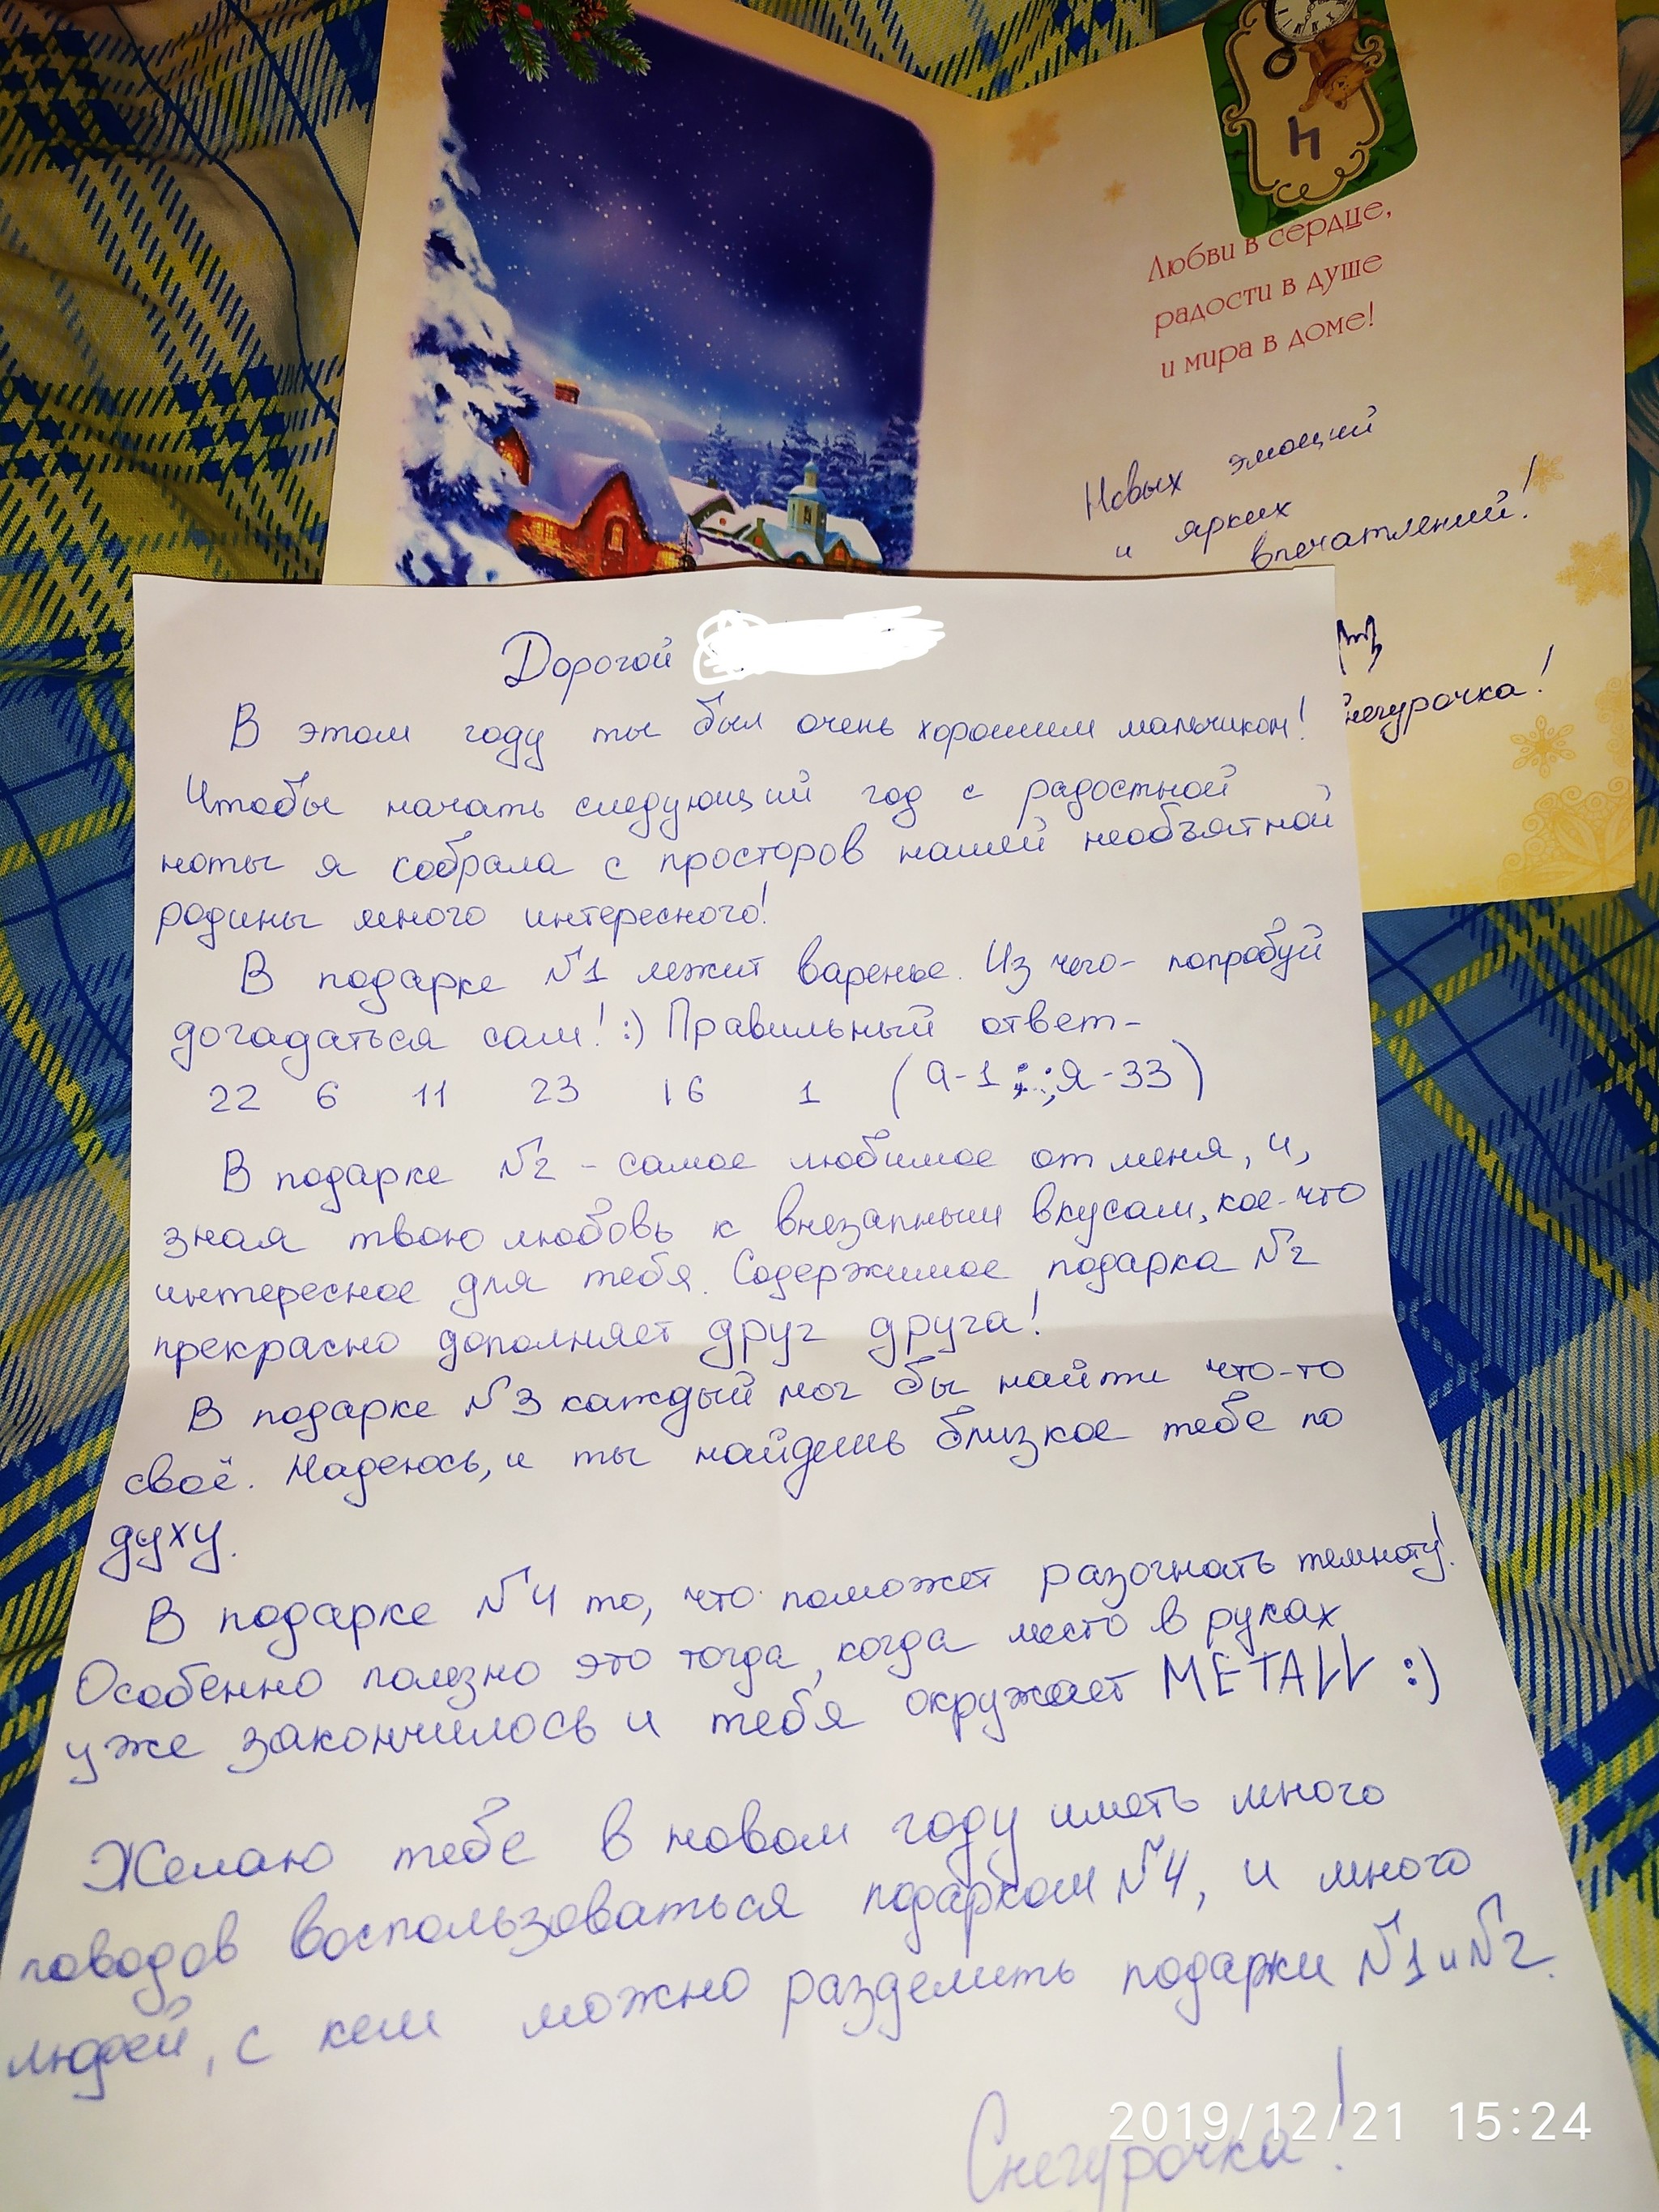 Н
Любви в сердце,
радости в душе
и мира в доме!
Новых эмоций
и ярких
впечатлений!
негурочка!
Дорогой
В этом году ты был очень хорошим мальчиком!
Чтобы начать следующий год с радостной
ноты я собрала с просторов нашей необъятной
родины много интересного!
В подарке №1 лежит варенье. Из чего- попробуй
догадаться сам! :) Правильный ответ-
22 6 11 23 16 1 (а-1 ;..; я-33)
В подарке №2 - самое любимое от меня, и,
зная твою любовь к внезапным вкусам, кое-что
интересное для тебя. Содержимое подарка №2
прекрасно дополняет друг друга!
В подарке №3 каждый мог бы найти что-то
своё. Надеюсь, и ты найдешь близкое тебе по
духу.
В подарке №4 то, что поможет разогнать темноту!
Особенно полезно это тогда, когда место в руках
уже закончилось и тебя окружает METALL :)
Желаю тебе в новом году иметь много
поводов воспользоваться подарком №4, и много
людей, с кем можно разделить подарки №1 и №2.
Снегурочка!
2019/12/21 15:24